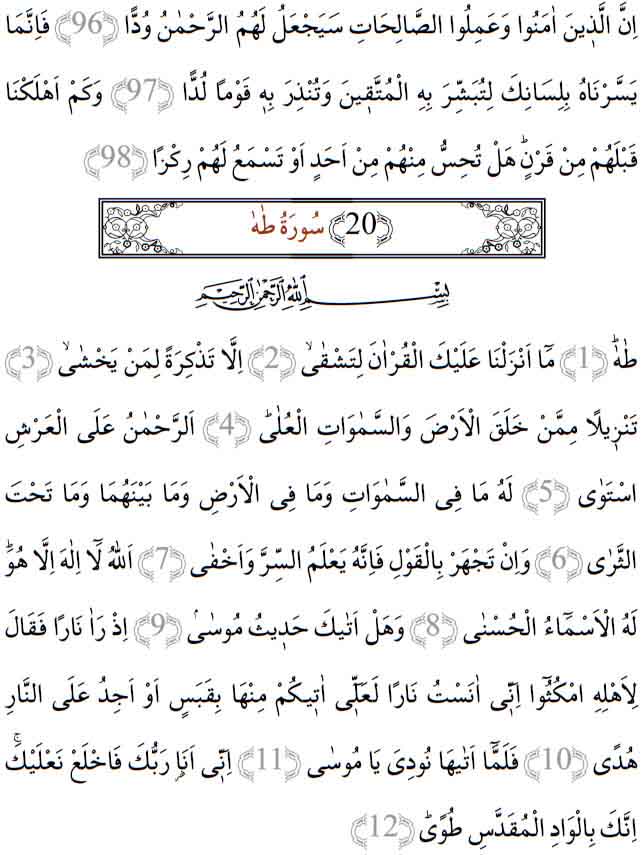 اِنَّ الَّذ۪ينَ اٰمَنُوا وَعَمِلُوا الصَّالِحَاتِ سَيَجْعَلُ لَهُمُ الرَّحْمٰنُ وُدًّا ﴿96﴾ فَاِنَّمَا
يَسَّرْنَاهُ بِلِسَانِكَ لِتُبَشِّرَ بِهِ الْمُتَّق۪ينَ وَتُنْذِرَ بِه۪ قَوْمًا لُدًّا ﴿97﴾ وَكَمْ اَهْلَكْنَا
قَبْلَهُمْ مِنْ قَرْنٍۜ هَلْ تُحِسُّ مِنْهُمْ مِنْ اَحَدٍ اَوْ تَسْمَعُ لَهُمْ رِكْزًا ﴿98﴾
﴿20﴾ سُورَةُ طٰهٰ
بِسْمِ اللّٰهِ الرَّحْمٰنِ الرَّحِيمِ
طٰهٰۜ ﴿1﴾ مَٓا اَنْزَلْنَا عَلَيْكَ الْقُرْاٰنَ لِتَشْقٰىۙ ﴿2﴾ اِلَّا تَذْكِرَةً لِمَنْ يَخْشٰىۙ ﴿3﴾
تَنْز۪يلًا مِمَّنْ خَلَقَ الْاَرْضَ وَالسَّمٰوَاتِ الْعُلٰىۜ ﴿4﴾ اَلرَّحْمٰنُ عَلَى الْعَرْشِ
اسْتَوٰى ﴿5﴾ لَهُ مَا فِى السَّمٰوَاتِ وَمَا فِى الْاَرْضِ وَمَا بَيْنَهُمَا وَمَا تَحْتَ
الثَّرٰى ﴿6﴾ وَاِنْ تَجْهَرْ بِالْقَوْلِ فَاِنَّهُ يَعْلَمُ السِّرَّ وَاَخْفٰى ﴿7﴾ اَللّٰهُ لَٓا اِلٰهَ اِلَّا هُوَۜ
لَهُ الْاَسْمَٓاءُ الْحُسْنٰى ﴿8﴾ وَهَلْ اَتٰيكَ حَد۪يثُ مُوسٰىۢ ﴿9﴾ اِذْ رَاٰ نَارًا فَقَالَ
لِاَهْلِهِ امْكُثُٓوا اِنّ۪ٓى اٰنَسْتُ نَارًا لَعَلّ۪ٓى اٰت۪يكُمْ مِنْهَا بِقَبَسٍ اَوْ اَجِدُ عَلَى النَّارِ
هُدًى ﴿10﴾ فَلَمَّٓا اَتٰيهَا نُودِىَ يَا مُوسٰى ﴿11﴾ اِنّ۪ٓى اَنَا۬ رَبُّكَ فَاخْلَعْ نَعْلَيْكَۚ
اِنَّكَ بِالْوَادِ الْمُقَدَّسِ طُوًىۜ ﴿12﴾